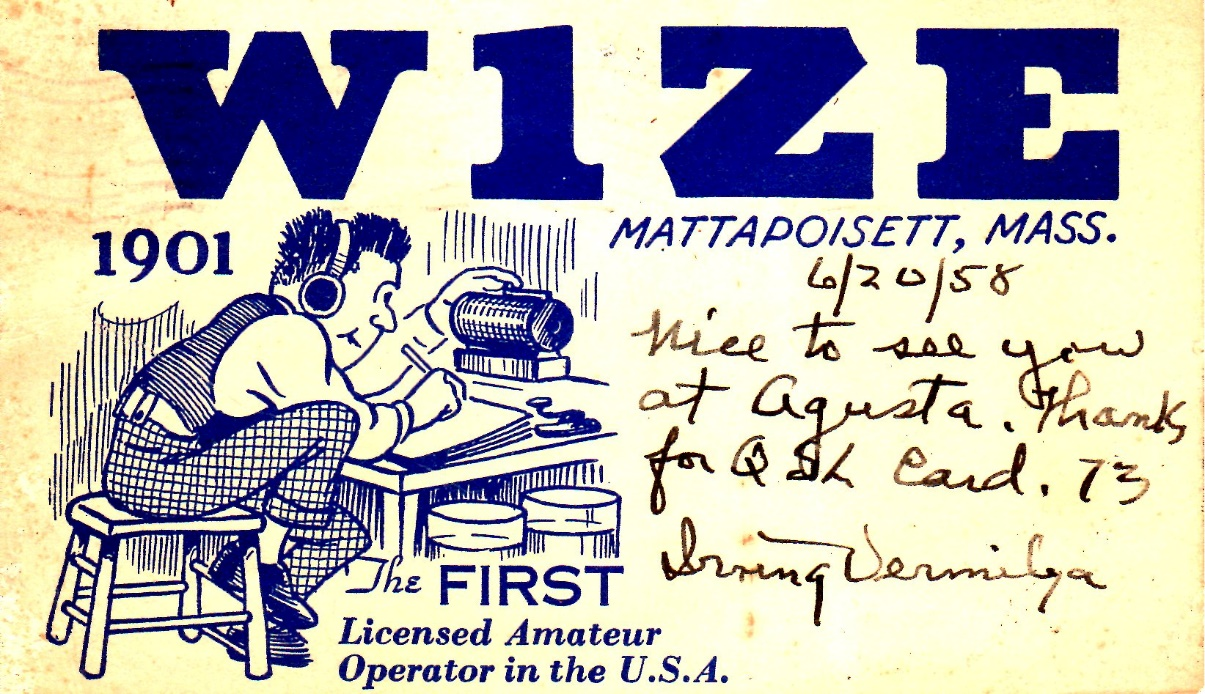 W1ZE
MATTAPOISETT, MASS.
1901
6/20/58
Nice to see you
at Agusta. Thanks
for QSL Card. 73
Irving Vermilya
The FIRST
Licensed Amateur
Operator in the U.S.A.